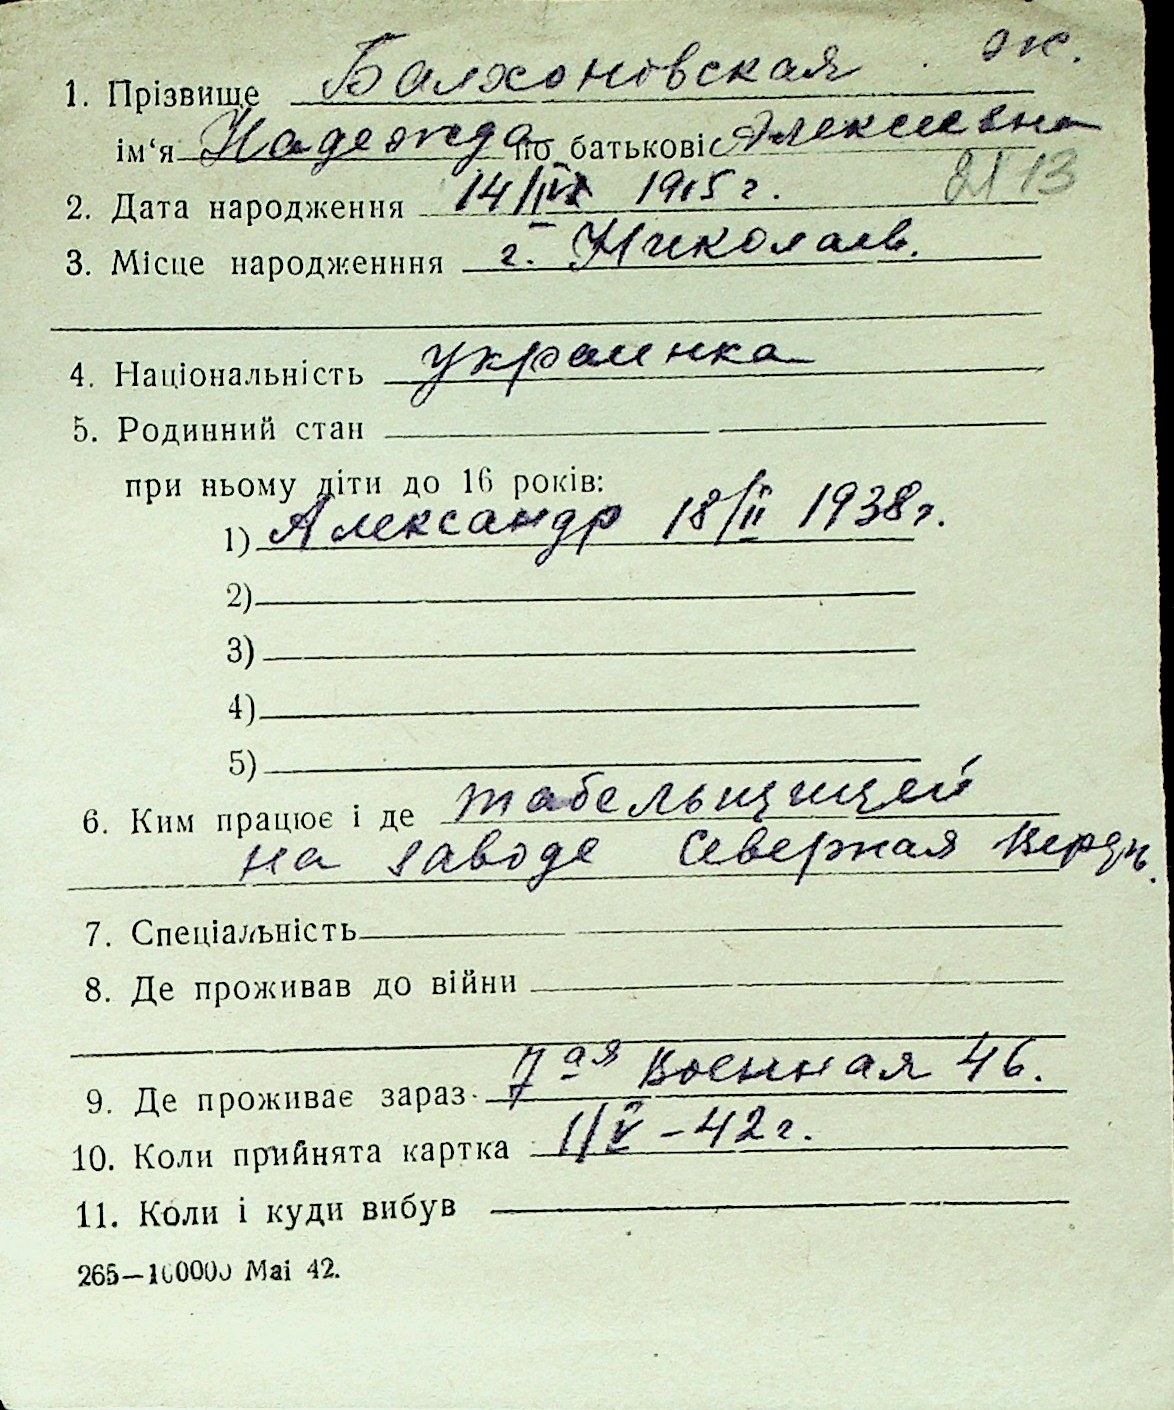 ж.
1. Прізвище Балхоновская
ім‘я Надежда по батькові Алексеевна
2. Дата народження 14/ 1915 г. 2113
3. Місце народженння г. Николаев.
4. Національність украинка
5. Родинний стан
при ньому діти до 16 років:
1) Александр 18/II 1938 г.
2)
3)
4)
5)
6. Ким працює і де табельщицей
на заводе Северная Верфь.
7. Спеціальність
8. Де проживав до війни
9. Де проживає зараз 7ая Военная 46.
10. Коли прийнята картка 1/V – 42 г.
11. Коли і куди вибув
265—100000 Mai 42.